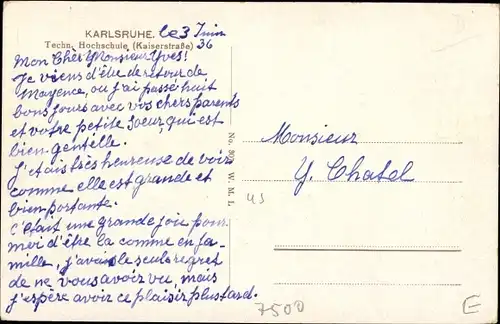 KARLSRUHE. le 3 Juin
Techn. Hochschule (Kaiserstraße) 36
Mon Chèr Monsieur Yves!
Je viens d'être de retour de
Mayence, ou j'ai passé huit
bons jours avec vos chers parents
et votre petite soeur, qui est
bien gentelle.
J'étais très heureuse de voir
comme elle est grande et
bien portante.
C'était une grande joie pour
moi d'être la comme en fa-
mille, j'avais le seule regret
de ne vous avoir vu, mais
j'espère avoir ce plaisir plus tard.
W. M. L.
Monsieur
Y. Chatel
7500
E